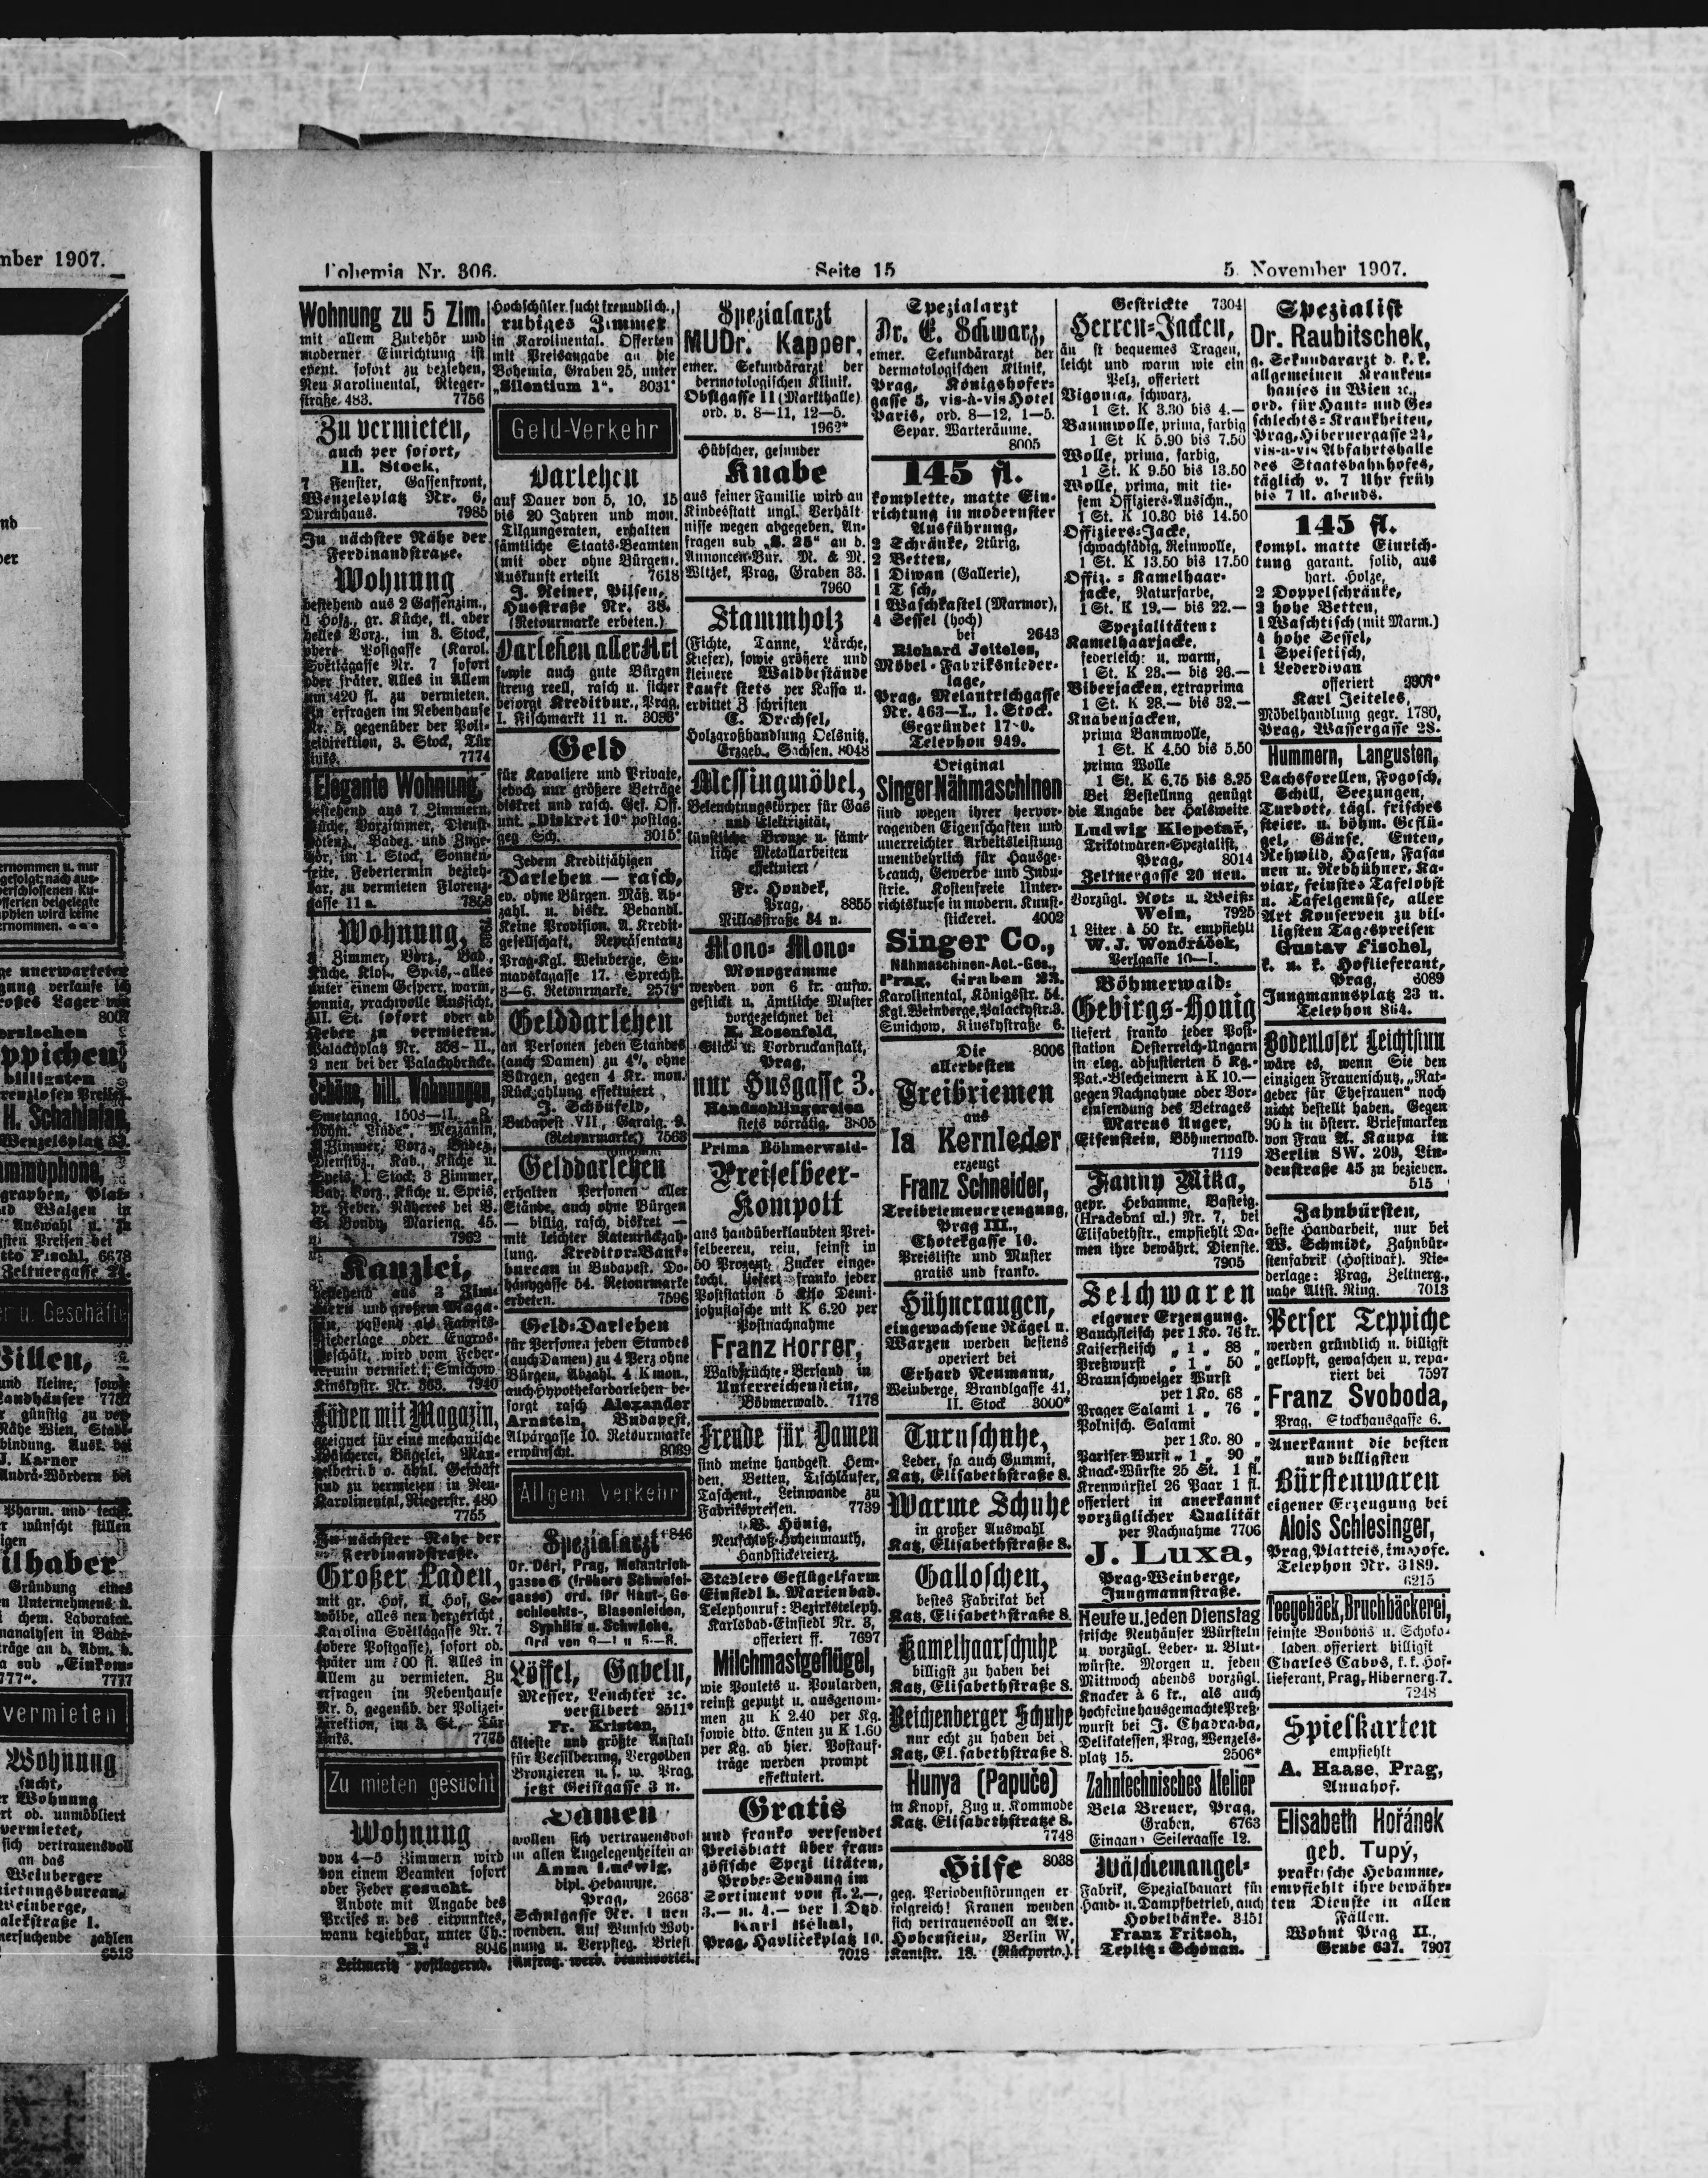 mber 1907.
Bohemia Nr. 306.
Seite 15
5. November 1907.
Wohnung zu 5 Zim.
mit allem Zubehör und
moderner Einrichtung ist
event. sofort zu beziehen,
Neu Karolinental, Rieger-
straße 483. 7756
Zu vermieten,
auch per sofort,
II. Stock,
7 Fenster, Gassenfront,
Wenzelsplatz Nr. 6,
Durchhaus. 7985
In nächster Nähe der
Ferdinandstraße.
Wohnung
bestehend aus 2 Gassenzim.,
1 Hofz., gr. Küche, kl. aber
helles Vorz., im 3. Stock,
obere Postgasse (Karol.
Světlágasse Nr. 7 sofort
oder später. Alles in Allem
um 420 fl. zu vermieten.
Zu erfragen im Nebenhause
Nr. 5, gegenüber der Poli-
zeidirektion, 3. Stock, Tür
links. 7774
Elegante Wohnung,
bestehend aus 7 Zimmern,
Küche, Vorzimmer, Dienst-
botenz., Badez. und Zuge-
hör, im 1. Stock, Sonnen-
seite, Febertermin bezieh-
bar, zu vermieten Florenz-
gasse 11 n. 7858
Wohnung,
3 Zimmer, Vorz., Bad.,
Küche, Klos., Speis, alles
unter einem Gesperr, warm,
sonnig, prachtvolle Aussicht,
III. St. sofort oder ab
Feber zu vermieten.
Palackyplatz Nr. 358-II.,
2 neu bei der Palackybrücke.
Schöne, bill. Wohnungen,
Smetanag. 1503-II.,
Mezzanin,
Zimmer, Vorz., Badez.,
Dienstbz., Kab., Küche u.
Speis, 1. Stock; 3 Zimmer,
Bad, Vorz., Küche u. Speis,
pr. Feber. Näheres bei B.
Bondy, Marieng. 45.
7962
Kanzlei,
bestehend aus 3 Zim-
mern und großem Maga-
zin, passend als Fabriks-
niederlage oder Engros-
geschäft, wird vom Feber-
Termin vermiet. Smichow
Kinskystr. Nr. 363. 7940
Läden mit Magazin,
geeignet für eine mechanische
Wäscherei, Büglei, Man-
gelbetrieb o. ähnl. Geschäft
sind zu vermieten in Neu-
Karolinental, Riegerstr. 480
7755
In nächster Nähe der
Ferdinandstraße.
Großer Laden,
mit gr. Hof, kl. Hof, Ge-
wölbe, alles neu hergericht.,
Karolina Světlágasse Nr. 7
(obere Postgasse), sofort od.
später um 700 fl. Alles in
Allem zu vermieten. Zu
erfragen im Nebenhause
Nr. 5, gegenüb. der Polizei-
direktion, im 3. St., Tür
links. 7775
Zu mieten gesucht
Wohnung
von 4—5 Zimmern wird
von einem Beamten sofort
oder Feber gesucht.
Anbote mit Angabe des
Preises u. des Zeitpunktes,
wann beziehbar, unter Ch.:
„B.“ 8046
Leitmeritz postlagernd.
Hochschüler sucht freundlich.,
ruhiges Zimmer
in Karolinental. Offerten
mit Preisangabe an die
Bohemia, Graben 25, unter
„Silentium 1“. 3031*
Geld-Verkehr
Darlehen
auf Dauer von 5, 10, 15
bis 20 Jahren und mon.
Tilgungsraten, erhalten
sämtliche Staats-Beamten
(mit oder ohne Bürgen).
Auskunft erteilt 7618
J. Reiner, Pilsen,
Husstraße Nr. 38.
(Retourmarke erbeten.)
Darlehen aller Art
sowie auch gute Bürgen
streng reell, rasch u. sicher
besorgt Kreditbur., Prag,
I. Fischmarkt 11 n. 3036*
Geld
für Kavaliere und Private,
jedoch nur größere Beträge
diskret und rasch. Gef. Off.
unt. „Diskret 10“ postlag.
geg. Sch. 3015*
Jedem Kreditfähigen
Darlehen — rasch,
ev. ohne Bürgen. Mäß. Ab-
zahl. u. diskr. Behandl.
Keine Provision. A. Kredit-
gesellschaft, Repräsentanz
Prag-Kgl. Weinberge, Šu-
mavskagasse 17. Sprechst.
3—6. Retourmarke. 2579*
Gelddarlehen
an Personen jeden Standes
(auch Damen) zu 4%, ohne
Bürgen, gegen 4 Kr. mon.
Rückzahlung effektuiert
J. Schönfeld,
Budapest VII., Garaig. 9.
(Retourmarke.) 7563
Gelddarlehen
erhalten Personen aller
Stände, auch ohne Bürgen
— billig, rasch, diskret —
mit leichter Ratenrückzah-
lung. Kreditor-Bank-
bureau in Budapest, Do-
hánygasse 54. Retourmarke
erbeten. 7596
Geld-Darlehen
für Personen jeden Standes
(auch Damen) zu 4 Perz ohne
Bürgen, Abzahl. 4 K mon.,
auch Hypothekardarlehen be-
sorgt rasch Alexander
Arnstein, Budapest,
Alpárgasse 10. Retourmarke
erwünscht. 8039
Allgem. Verkehr
Spezialarzt +846
Dr. Dérl, Prag, Melantrich-
gasse 6 (frühere Schwefel-
gasse) ord. für Haut-, Ge-
schlechts-, Blasenleiden,
Syphilis u. Schwäche.
Ord von 9—1 u 5—8.
Löffel, Gabeln,
Messer, Leuchter ec.
versilbert 2511*
Fr. Kristen,
älteste und größte Anstalt
für Versilberung, Vergolden
Bronzieren u. s. w. Prag,
jetzt Geistgasse 3 n.
Damen
wollen sich vertrauensvoll
in allen Angelegenheiten an
Anna Ludwig,
dipl. Hebamme,
Prag, 2663*
Schulgasse Nr. 1 neu
wenden. Auf Wunsch Woh-
nung u. Verpfleg. Briefl.
Anfrag. werd. beantwortet.
Spezialarzt
MUDr. Kapper,
emer. Sekundärarzt der
dermotologischen Klinik.
Obstgasse 11 (Markthalle)
ord. v. 8—11, 12—5.
1962*
Hübscher, gesunder
Knabe
aus feiner Familie wird an
Kindesstatt ungl. Verhält
nisse wegen abgegeben. An-
fragen sub „S. 25“ an d.
Annoncen-Bur. M. & M.
Wltzek, Prag, Graben 33.
7960
Stammholz
(Fichte, Tanne, Lärche,
Kiefer), sowie größere und
kleinere Waldbestände
kauft stets per Kassa u.
erbittet Zuschriften
C. Drechsel,
Holzgroßhandlung Oelsnitz,
Erzgeb., Sachsen. 8048
Messingmöbel,
Beleuchtungskörper für Gas
und Elektrizität,
künstliche Bronze u. sämt-
liche Metallarbeiten
effektuiert
Fr. Houdek,
Prag, 8855
Niklasstraße 34 n.
Mono- Mono-
Monogramme
werden von 6 kr. aufw.
gestickt u. sämtliche Muster
vorgezeichnet bei
K. Rosenfeld,
Stick- u. Vordruckanstalt,
Prag,
nur Husgasse 3.
Handschlingereien
stets vorrätig. 3805
Prima Böhmerwald-
Preiselbeer-
Kompott
aus handüberklaubten Prei-
selbeeren, rein, feinst in
50 Prozent. Zucker einge-
kocht, liefert franko jeder
Poststation 5 Kilo Demi-
johnflasche mit K 6.20 per
Postnachnahme
Franz Horrer,
Waldfrüchte-Versand in
Unterreichenstein,
Böhmerwald. 7178
Freude für Damen
sind meine handgest. Hem-
den, Betten, Tischläufer,
Taschent., Leinwande zu
Fabrikspreisen. 7739
B. Hönig,
Neuschloß-Hohenmauth,
Handstickereierz.
Stadlers Geflügelfarm
Einsiedl b. Marienbad.
Telephonruf: Bezirksteleph.
Karlsbad-Einsiedl Nr. 3,
offeriert ff. 7697
Milchmastgeflügel,
wie Poulets u. Poularden,
reinst geputzt u. ausgenom-
men zu K 2.40 per Kg.
sowie dtto. Enten zu K 1.60
per Kg. ab hier. Postauf-
träge werden prompt
effektuiert.
Gratis
und franko versendet
Preisblatt über fran-
zösische Spezialitäten,
Probe-Sendung im
Sortiment von fl. 2.—,
3.— u. 4.— per 1 Dtzd.
Karl Běhal,
Prag, Havličekplatz 10.
7018
Spezialarzt
Dr. E. Schwarz,
emer. Sekundärarzt der
dermotologischen Klinik,
Prag, Königshofer-
gasse 5, vis-à-vis Hotel
Paris, ord. 8—12, 1—5.
Separ. Warteräume.
8005
145 fl.
komplette, matte Ein-
richtung in modernster
Ausführung,
2 Schränke, 2türig,
2 Betten,
1 Diwan (Gallerie),
1 Tisch,
1 Waschkastel (Marmor),
4 Sessel (hoch)
bei 2643
Richard Jeiteles,
Möbel-Fabriksnieder-
lage,
Prag, Melantrichgasse
Nr. 463—I., 1. Stock.
Gegründet 17 0.
Telephon 949.
Original
Singer Nähmaschinen
sind wegen ihrer hervor-
ragenden Eigenschaften und
unerreichter Arbeitsleistung
unentbehrlich für Hausge-
brauch, Gewerbe und Indu-
strie. Kostenfreie Unter-
richtskurse in modern. Kunst-
stickerei. 4002
Singer Co.,
Nähmaschinen-Act.-Ges.,
Prag, Graben 23.
Karolinental, Königsstr. 54.
Kgl. Weinberge, Palackystr. 3.
Smichow, Kinskystraße 6.
Die 8006
allerbesten
Treibriemen
aus
Ia Kernleder
erzeugt
Franz Schneider,
Treibriemenerzeugung,
Prag III.,
Chotekgasse 10.
Preisliste und Muster
gratis und franko.
Hühneraugen,
eingewachsene Nägel u.
Warzen werden bestens
operiert bei
Erhard Neumann,
Weinberge, Brandlgasse 41,
II. Stock 3000*
Turnschuhe,
Leder, so auch Gummi,
Katz, Elisabethstraße 8.
Warme Schuhe
in großer Auswahl
Katz, Elisabethstraße 8.
Galloschen,
bestes Fabrikat bei
Katz, Elisabethstraße 8.
Kamelhaarschuhe
billigst zu haben bei
Katz, Elisabethstraße 8.
Reichenberger Schuhe
nur echt zu haben bei
Katz, Elisabethstraße 8.
Hunya (Papuče)
in Knopf, Zug u. Kommode
Katz, Elisabethstraße 8.
7748
Hilfe 8038
geg. Periodenstörungen er-
folgreich! Frauen wenden
sich vertrauensvoll an Ar.
Hohenstein, Berlin W,
Kantstr. 18. (Rückporto.)
Gestrickte 7304
Herren-Jacken,
äußerst bequemes Tragen,
leicht und warm wie ein
Pelz, offeriert
Vigonia, schwarz,
1 St. K 3.30 bis 4.—
Baumwolle, prima, farbig
1 St K 5.90 bis 7.50
Wolle, prima, farbig,
1 St. K 9.50 bis 13.50
Wolle, prima, mit tie-
fem Offiziers-Ausschn.,
1 St. K 10.30 bis 14.50
Offiziers-Jacke,
schwachfädig, Reinwolle,
1 St. K 13.50 bis 17.50
Offiz.-Kamelhaar-
jacke, Naturfarbe,
1 St. K 19.— bis 22.—
Spezialitäten:
Kamelhaarjacke,
federleicht u. warm,
1 St. K 23.— bis 26.—
Biberjacken, extraprima
1 St. K 28.— bis 32.—
Knabenjacken,
prima Baumwolle,
1 St. K 4.50 bis 5.50
prima Wolle
1 St. K 6.75 bis 8.25
Bei Bestellung genügt
die Angabe der Halsweite.
Ludwig Klepetař,
Trikotwaren-Spezialist,
Prag, 8014
Zeltnergasse 20 neu.
Vorzügl. Rot- u. Weiß-
Wein, 7925
1 Liter à 50 kr. empfiehlt
W. J. Wondráček,
Perlgasse 10—I.
Böhmerwald-
Gebirgs-Honig
liefert franko jeder Post-
station Oesterreich-Ungarn
in eleg. adjustierten 5 Kg.-
Pat.-Blecheimern à K 10.—
gegen Nachnahme oder Vor-
einsendung des Betrages
Marcus Unger,
Eisenstein, Böhmerwald.
7119
Fanny Mika,
gepr. Hebamme, Basteig.
(Hradební ul.) Nr. 7, bei
Elisabethstr., empfiehlt Da-
men ihre bewährt. Dienste.
7905
Selchwaren
eigener Erzeugung.
Bauchfleisch per 1 Ko. 76 kr.
Kaiserfleisch „ 1 „ 88 „
Preßwurst „ 1 „ 50 „
Braunschweiger Wurst
per 1 Ko. 68 „
Prager Salami 1 „ 76 „
Polnisch. Salami
per 1 Ko. 80 „
Pariser Wurst „ 1 „ 90 „
Knack-Würste 25 St. 1 fl.
Krenwürstel 26 Paar 1 fl.
offeriert in anerkannt
vorzüglicher Qualität
per Nachnahme 7706
J. Luxa,
Prag-Weinberge,
Jungmannstraße.
Heute u. jeden Dienstag
frische Neuhäuser Würsteln
u vorzügl. Leber- u. Blut-
würste. Morgen u. jeden
Mittwoch abends vorzügl.
Knacker à 6 kr., als auch
hochfeine hausgemachte Preß-
wurst bei J. Chadraba,
Delikatessen, Prag, Wenzels-
platz 15. 2506*
Zahntechnisches Atelier
Bela Brener, Prag,
Graben, 6763
Eingang Seilergasse 12.
Wäschemangel-
Fabrik, Spezialbauart für
Hand- u. Dampfbetrieb, auch
Hobelbänke. 3151
Franz Fritsch,
Teplitz-Schönau.
Spezialist
Dr. Raubitschek,
g. Sekundararzt d. k. k.
allgemeinen Kranken-
hauses in Wien ec.,
ord. für Haut- und Ge-
schlechts-Krankheiten,
Prag, Hibernergasse 24,
vis-a-vis Abfahrtshalle
des Staatsbahnhofes,
täglich v. 7 Uhr früh
bis 7 U. abends.
145 fl.
kompl. matte Einrich-
tung garant. solid, aus
hart. Holze,
2 Doppelschränke,
2 hohe Betten,
1 Waschtisch (mit Marm.)
4 hohe Sessel,
1 Speisetisch,
1 Lederdivan
offeriert
Karl Jeiteles,
Möbelhandlung gegr. 1780,
Prag, Wassergasse 28.
Hummern, Langusten,
Lachsforellen, Fogosch,
Schill, Seezungen,
Turbott, tägl. frisches
steier. u. böhm. Geflü-
gel, Gänse, Enten,
Rehwild, Hasen, Fasa-
nen u. Rebhühner, Ka-
viar, feinstes Tafelobst
u. Tafelgemüse, aller
Art Konserven zu bil-
ligsten Tagespreisen
Gustav Fischel,
k. u. k. Hoflieferant,
Prag, 6089
Jungmannsplatz 23 n.
Telephon 864.
Bodenloser Leichtsinn
wäre es, wenn Sie den
einzigen Frauenschutz, „Rat-
geber für Ehefrauen“ noch
nicht bestellt haben. Gegen
90 h in österr. Briefmarken
von Frau A. Kaupa in
Berlin SW. 209, Lin-
denstraße 45 zu beziehen.
515
Zahnbürsten,
beste Handarbeit, nur bei
W. Schmidt, Zahnbür-
stenfabrik (Hostivař). Nie-
derlage: Prag, Zeltnerg.,
nahe Altst. Ring. 7013
Perser Teppiche
werden gründlich u. billigst
geklopft, gewaschen u. repa-
riert bei 7597
Franz Svoboda,
Prag, Stockhausgasse 6.
Anerkannt die besten
und billigsten
Bürstenwaren
eigener Erzeugung bei
Alois Schlesinger,
Prag, Platteis, im Hofe.
Telephon Nr. 3189.
6215
Teegebäck, Bruchbäckerei,
feinste Bonbons u. Schoko-
laden offeriert billigst
Charles Cabos, k. k. Hof-
lieferant, Prag, Hibernerg. 7.
7248
Spielkarten
empfiehlt
A. Haase, Prag,
Annahof.
Elisabeth Hořánek
geb. Tupý,
praktische Hebamme,
empfiehlt ihre bewähr-
ten Dienste in allen
Fällen.
Wohnt Prag II.,
Grube 637. 7907